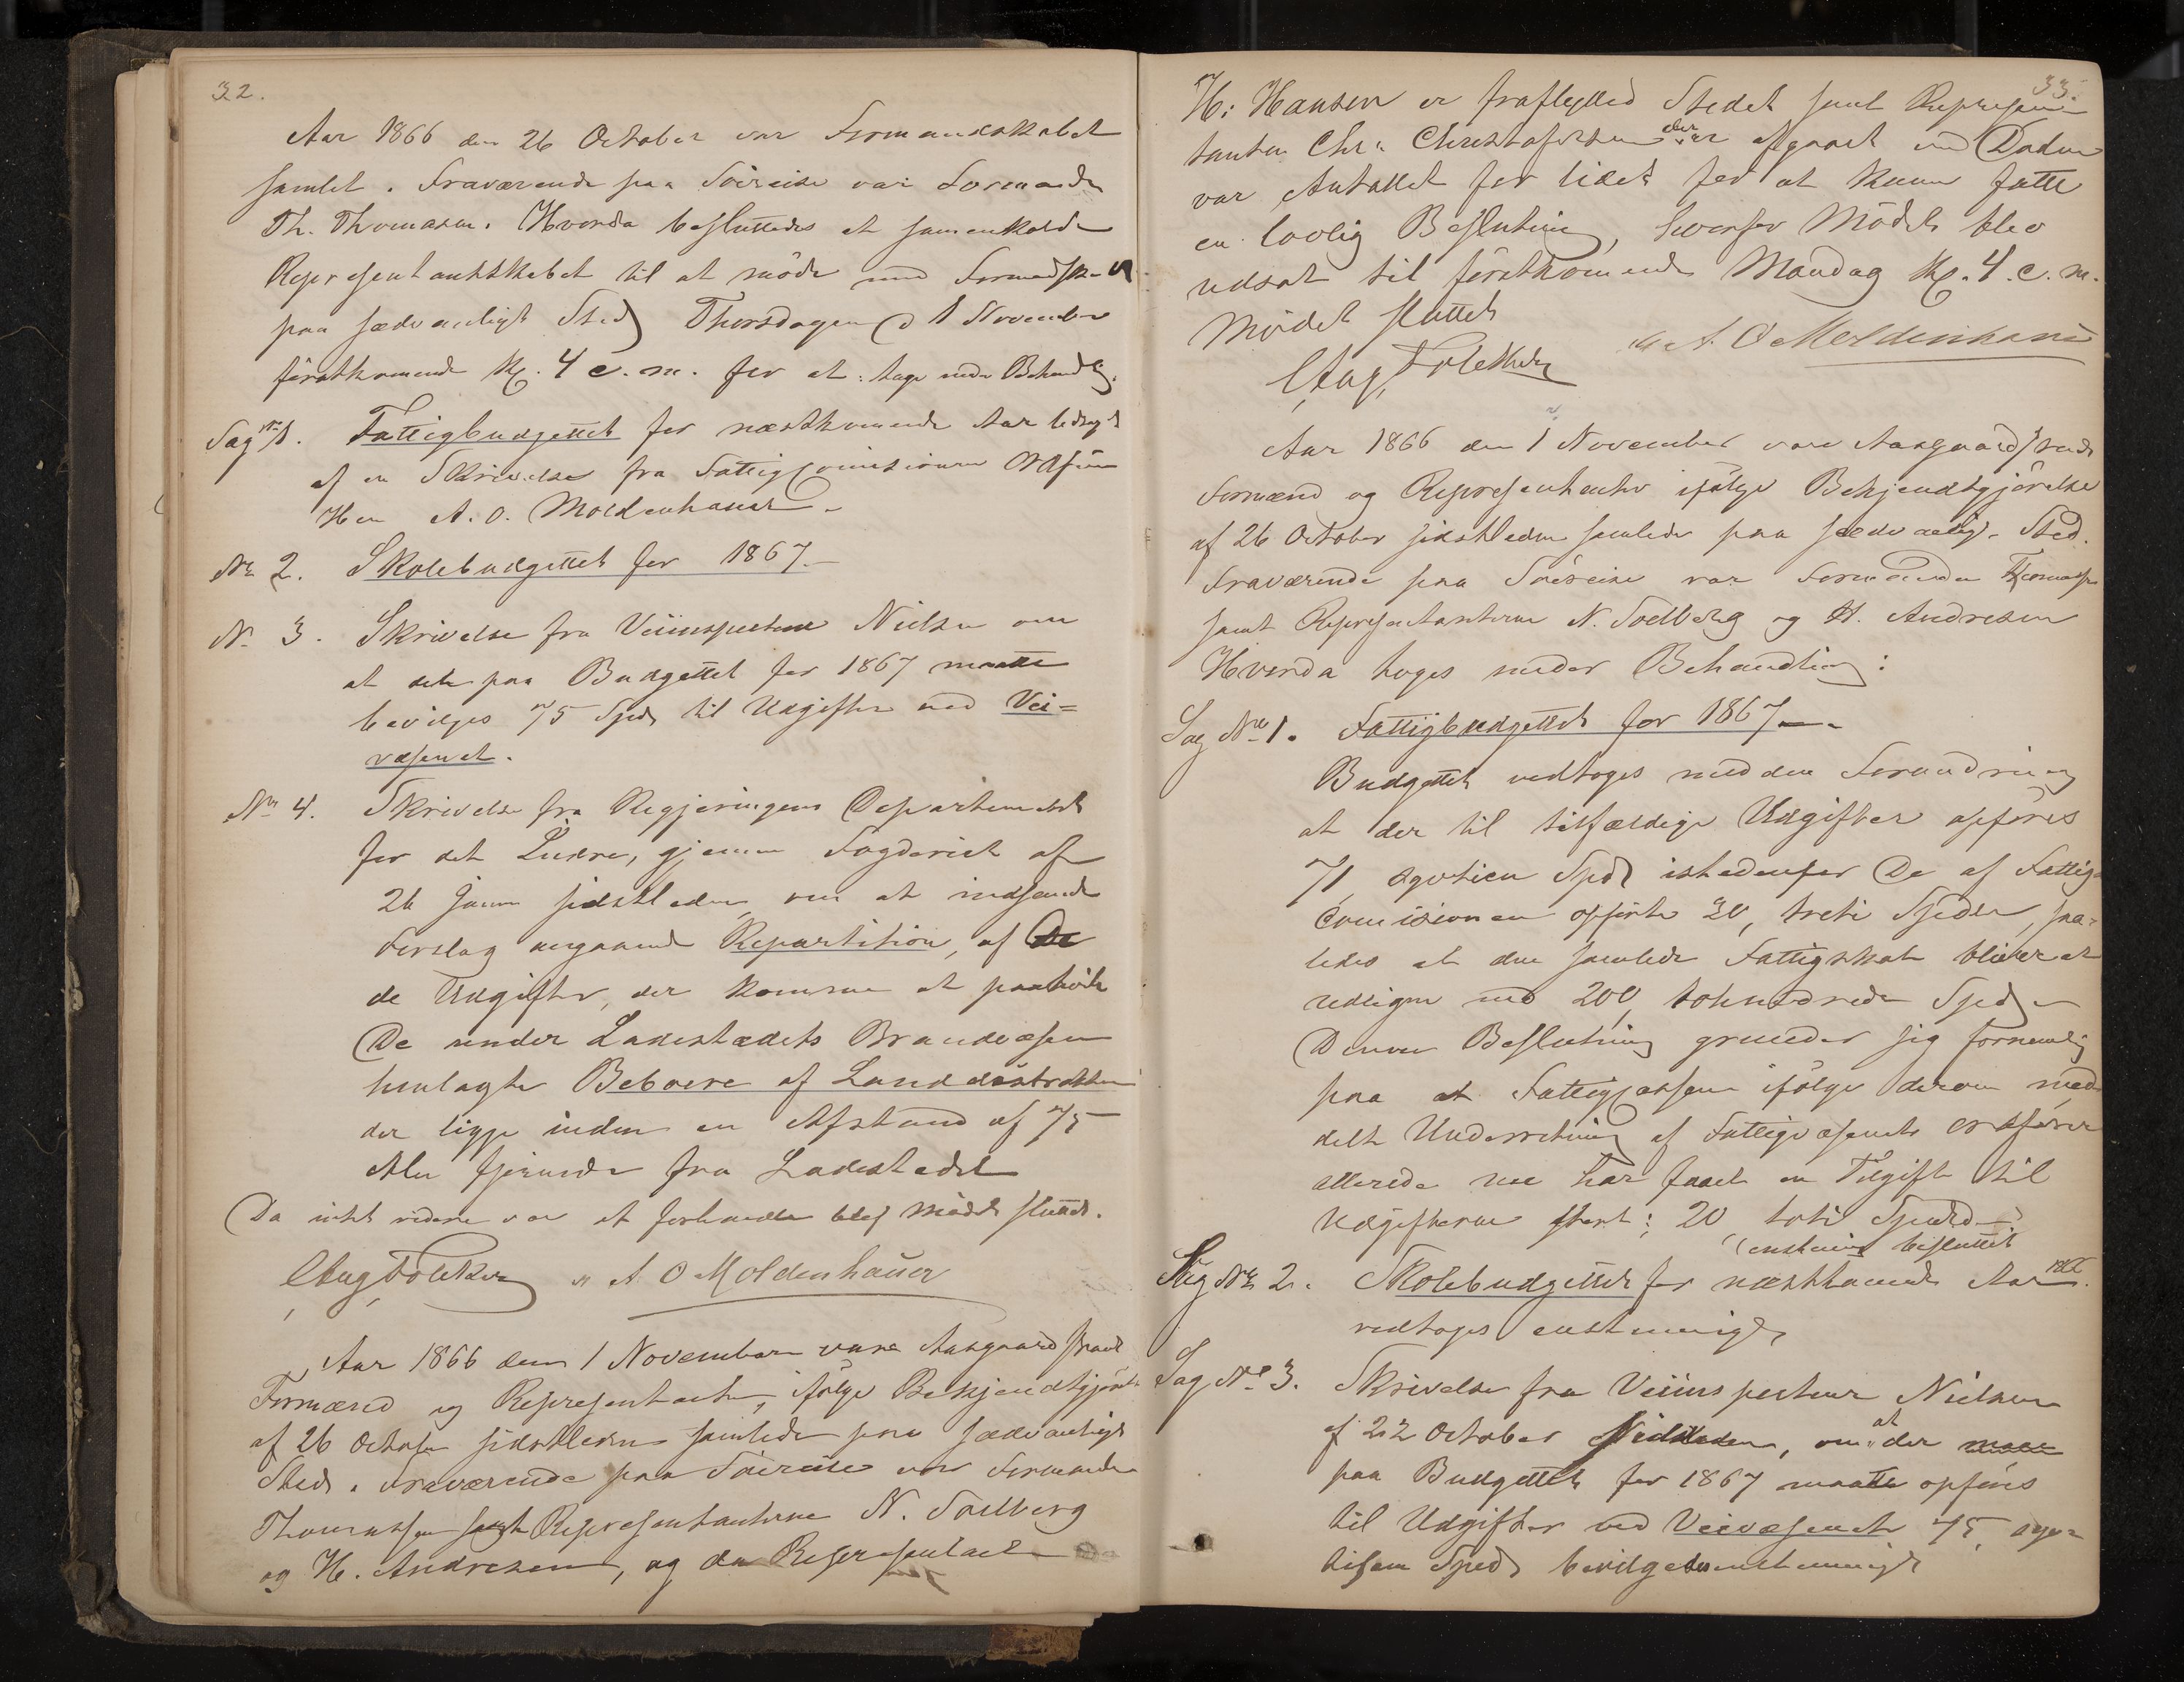 32.
Aar 1866 den 26 October var Formandskabet
samlet. Fraværende paa Søireise var Formanden
Th. Thomasen. Hvorda besluttedes at samenkalde
Representantskabet til at möde med Formandsk
paa sædvanligt Sted Thorsdagen d 1 November
førstkomende Kl. 4 e. m. for at tage under Behandlg.
Sag No 1. Fattigbudgettet for næstkomende Aar ledsaget
af en Skrivelse fra Fattigcomisionens Ordfører
Herr A. O. Moldenhauer.
No 2. Skolebudgettet for 1867.
No 3. Skrivelse fra Veiinspecteur Nielsen om
at der paa Budgettet for 1867 maatte
bevilges 75 Spd til Udgifter ved Vei=
væsenet.
No 4. Skrivelse fra Regjeringens Departement
for det Indre, gjennem Fogderiet af
26 Juni sidstleden, om at indsende
Forslag angaaende Repartition, af De
de Udgifter, der komme at paahvile
De under Ladestædets Brandvæsen
henlagte Beboere af Landdistrikten
der ligge inden en Afstand af 75
Alen fjernede fra Ladestedet
Da intet videre var at forhandle blef mödet sluttet.
Aug Foleker A O Moldenhauer
Aar 1866 den 1 November vare Aasgaardstrands
Formænd og Representanter, ifølge Bekjendtgjørelse
af 26 October sidstleden samlede paa sædvanligt
Sted. Fraværende paa Søireise var Formanden
Thomassen samt Representanterne N. Soelberg
og H. Andresen, og da Representant
33.
H: Hansen er fraflytted Stedet samt Represen
tanten Chr. Christofersen der er afgaaet ved Døden
var Antallet for lidet for at kunne fatte
en lovlig Beslutning, hvorfor Mödet blev
udsat til förstkomende Mandag Kl. 4 e. m.
Mödet sluttet
Aug. Foleker A. O Moldenhauer
Aar 1866 den 1 November vare Aasgaardstrands
Formænd og Representanter ifølge Bekjendtgjörelse
af 26 October sidstleden samlede paa sædvanlig Sted.
Fraværende paa Søireise var Formanden Thomassen
samt Representanterne N. Soelberg og H. Andresen
Hvorda toges under Behandling:
Sag No 1. Fattigbudgettet for 1867.
Budgettet vedtoges med den Forandring
at der til tilfældige Udgifter opføres
71, Spd istedenfor De af Fattig
Comisionen opførte 30, treti Spedr, saa=
ledes at den samlede Fattigskat bliver at
udligne med 200, tohundrede Spd
Denne Beslutning grunder sig fornemlig
paa at Fattigcassen ifølge derom med
delt Underretning af Fattigvæsenets Ordfører
allerede nu har faaet en Tilgift til
Udgifterne stort: 20 toti Specd
enstemig besluttet
Sag No 2. Skolebudgettet for næstkomende Aar
vedtoges enstemigt
Sag No 3. Skrivelse fra Veiinspecteur Nielsen
af 22 October sidstleden, om at der maae
paa Budgettet for 1867 maatte opføres
til Udgifter ved Veivæsenet 75, syv=
tifem Sped bevilgedes enstemmigt